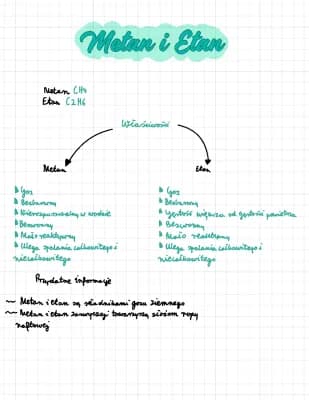 Metan i Etan
Metan CH4
Etan C2H6
Właściwości
Metan
Gaz
Bezbarwny
Nierozpuszczalny w wodzie
Bezwonny
Mało reaktywny
Ulega spalaniu całkowitego i
niecałkowitego
Etan
Gaz
Bezbarwny
Gęstość większa od gęstości powietrza
Bezwonny
Mało reaktywny
Ulega spalaniu całkowitego i
niecałkowitego
Przydatne informacje
~ Metan i etan są składnikami gazu ziemnego
~ Metan i etan zazwyczaj towarzyszą złożom ropy
naftowej